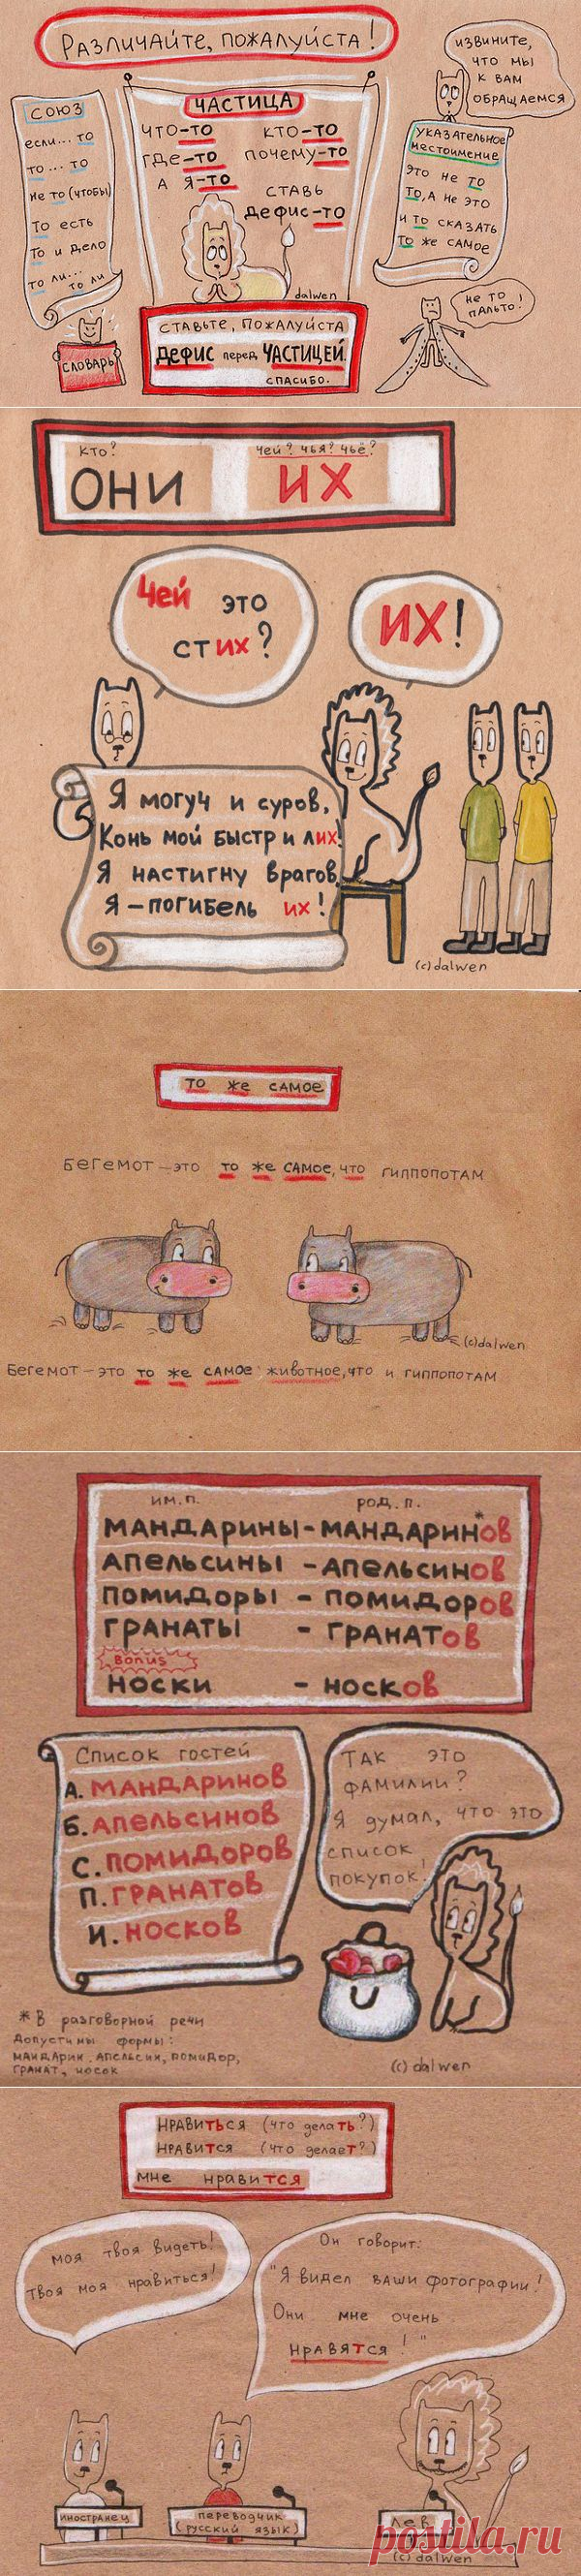 Различайте, пожалуйста!
союз
если... то
то... то
не то (чтобы)
то есть
то и дело
то ли...
то ли
словарь
частица
что-то кто-то
где-то почему-то
а я-то
ставь
дефис-то
dalwen
ставьте, пожалуйста
дефис перед частицей.
спасибо.
извините,
что мы
к вам
обращаемся
указательное
местоимение
это не то
то, а не это
и то сказать
то же самое
не то
пальто!
кто?
они
чей? чья? чьё?
их
Чей это
стих?
их!
Я могуч и суров,
Конь мой быстр и лих!
Я настигну врагов,
Я – погибель их!
(c) dalwen
то же самое
Бегемот – это то же самое, что гиппопотам
(c) dalwen
Бегемот – это то же самое животное, что и гиппопотам
им.п. род.п.
мандарины - мандаринов*
апельсины - апельсинов
помидоры - помидоров
гранаты - гранатов
Bonus
носки - носков
Список гостей
А. Мандаринов
Б. Апельсинов
С. Помидоров
П. Гранатов
И. Носков
Так это
фамилии?
Я думал, что это
список
покупок!
* В разговорной речи
допустимы формы:
мандарин, апельсин, помидор,
гранат, носок
(c) dalwen
нравиться (что делать?)
нравится (что делает?)
мне нравится
моя твоя видеть!
твоя моя нравиться!
Он говорит:
"Я видел ваши фотографии!
Они мне очень
нравятся!"
иностранец
переводчик
(русский язык)
лев
(c) dalwen
postila.ru